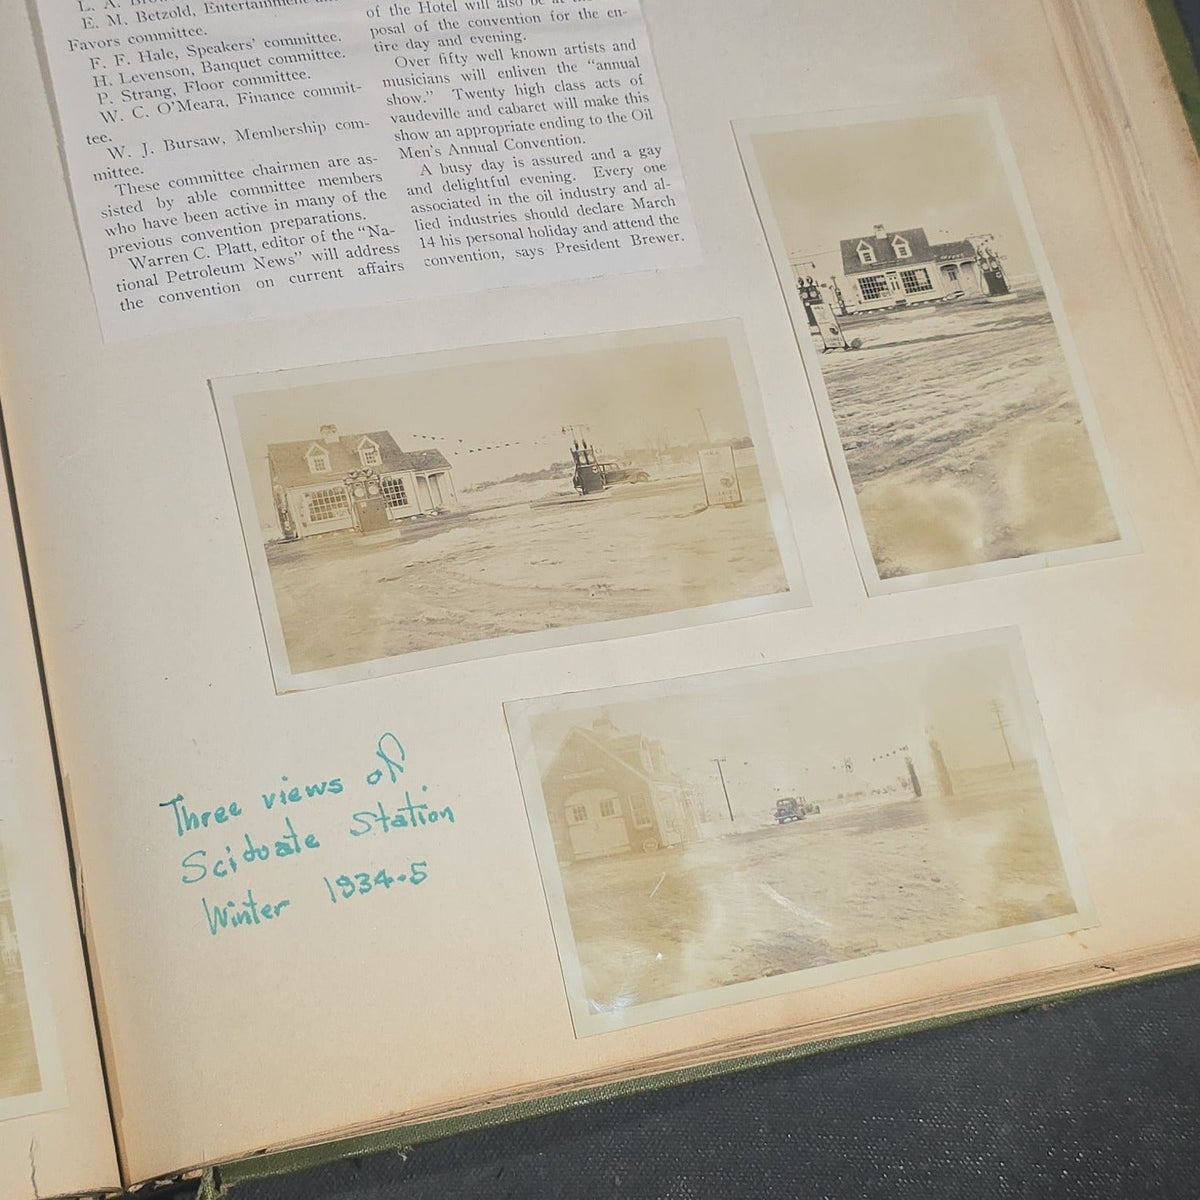 L. A.
E. M. Betzold, Entertainment and
Favors committee.
F. F. Hale, Speakers' committee.
H. Levenson, Banquet committee.
P. Strang, Floor committee.
W. C. O'Meara, Finance commit-
tee.
W. J. Bursaw, Membership com-
mittee.
These committee chairmen are as-
sisted by able committee members
who have been active in many of the
previous convention preparations.
Warren C. Platt, editor of the "Na-
tional Petroleum News" will address
the convention on current affairs
of the Hotel will also be at
posal of the convention for the en-
tire day and evening.
Over fifty well known artists and
musicians will enliven the "annual
show." Twenty high class acts of
vaudeville and cabaret will make this
show an appropriate ending to the Oil
Men's Annual Convention.
A busy day is assured and a gay
and delightful evening. Every one
associated in the oil industry and al-
lied industries should declare March
14 his personal holiday and attend the
convention, says President Brewer.
Three views of
Scituate Station
Winter 1934-5